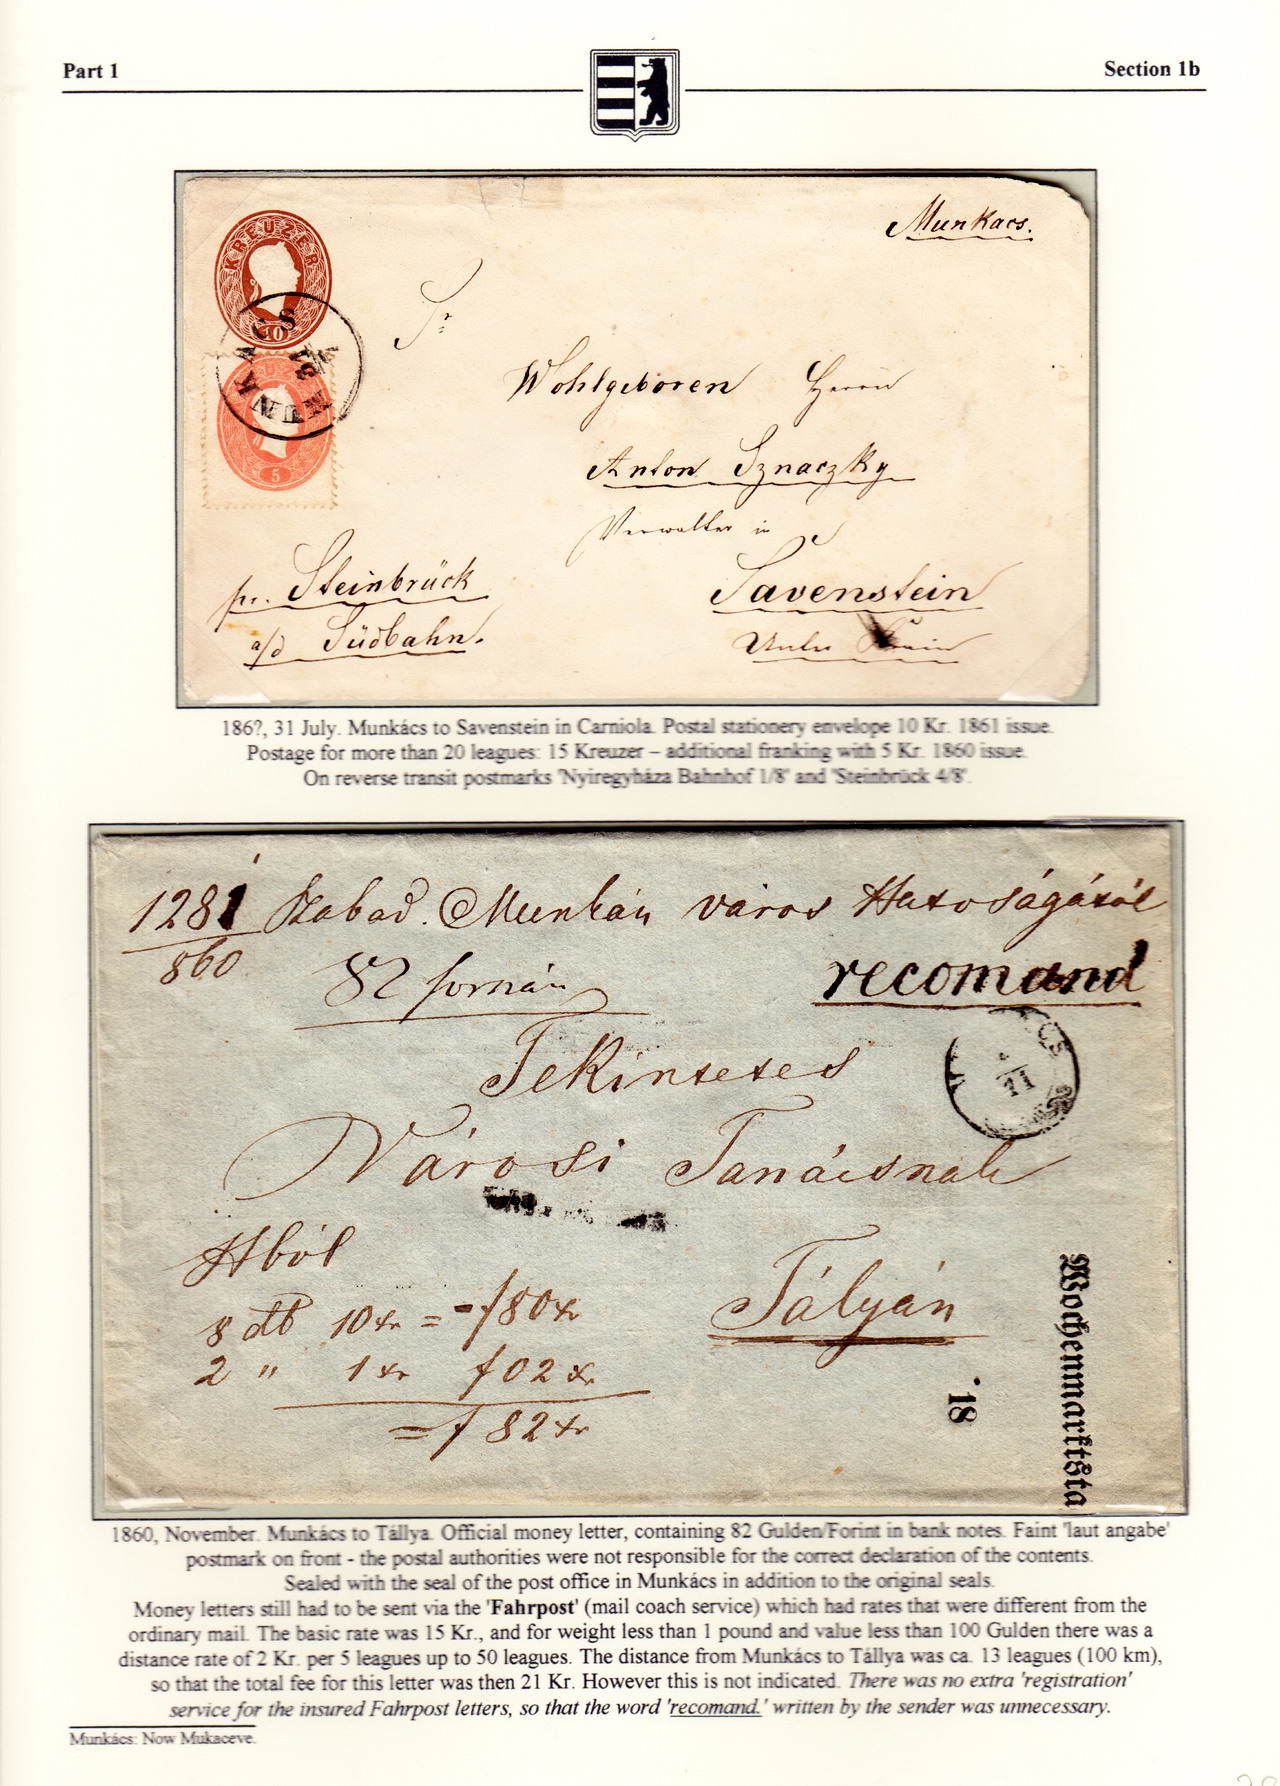 Part 1
Section 1b
KREUZER
10
Munkacs.
MUNKACS
31/7
5
Sr
Wohlgeboren Herrn
Anton Sznaczky
Verwalter in
Savenstein
Unter Krain
pr. Steinbrück
a/d Südbahn.
186?, 31 July. Munkács to Savenstein in Carniola. Postal stationery envelope 10 Kr. 1861 issue.
Postage for more than 20 leagues: 15 Kreuzer – additional franking with 5 Kr. 1860 issue.
On reverse transit postmarks 'Nyiregyháza Bahnhof 1/8' and 'Steinbrück 4/8'.
1281 Szabad. Munkács város Hatoságától
860
82 forint
recomand
CS
11
Tekintetes
Városi Tanácsnak
Hból
8 db 10 xr = f 80 xr
2 " 1 xr f 02 xr
= f 82 xr
Tályán
18
Wochenmarktsta
1860, November. Munkács to Tállya. Official money letter, containing 82 Gulden/Forint in bank notes. Faint 'laut angabe'
postmark on front - the postal authorities were not responsible for the correct declaration of the contents.
Sealed with the seal of the post office in Munkács in addition to the original seals.
Money letters still had to be sent via the 'Fahrpost' (mail coach service) which had rates that were different from the
ordinary mail. The basic rate was 15 Kr., and for weight less than 1 pound and value less than 100 Gulden there was a
distance rate of 2 Kr. per 5 leagues up to 50 leagues. The distance from Munkács to Tállya was ca. 13 leagues (100 km),
so that the total fee for this letter was then 21 Kr. However this is not indicated. There was no extra 'registration'
service for the insured Fahrpost letters, so that the word 'recomand.' written by the sender was unnecessary.
Munkács: Now Mukaceve.